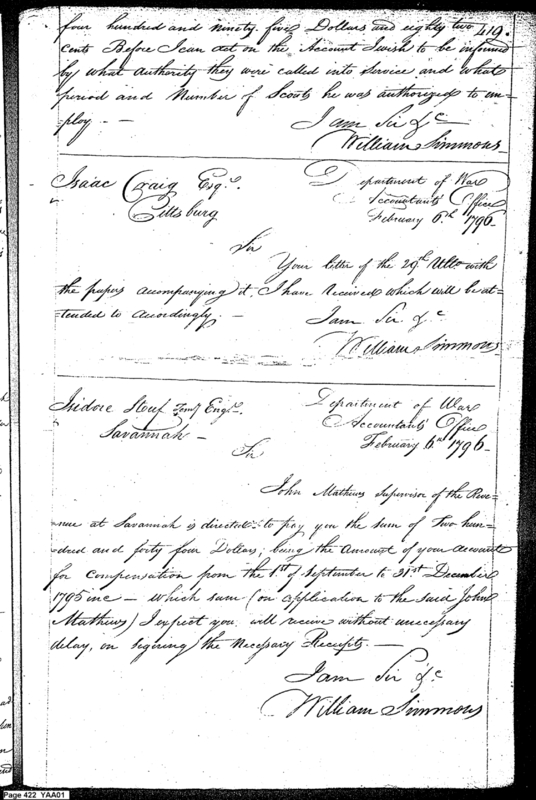 419.
four hundred and ninety five Dollars and eighty two
cents Before I can act on the Account I wish to be informed
by what authority they were called into service and what
period and Number of Scouts he was authorized to em=
=ploy. —
I am Sir &c
William Simmons
Isaac Craig Esqr.
Pittsburg
Department of War
Accountants Office
February 6th 1796
Sir
Your letter of the 29th Ulto. with
the papers accompanying it, I have received which will be at=
=tended to accordingly. —
I am Sir &c
William Simmons
Isidore Stouf Temy Engr.
Savannah —
Department of War
Accountants Office
February 6th 1796
Sir
John Mathews Supervisor of the Reve=
nue at Savannah is directed to pay you the sum of Two hun=
=dred and forty four Dollars; being the Amount of your account
for compensation from the 1st of September to 31st December
1795 inc — which sum (on application to the said John
Mathews) I expect you will receive without unnecessary
delay, on signing the Necessary Receipts. —
I am Sir &c
William Simmons
Page 422 YAA01